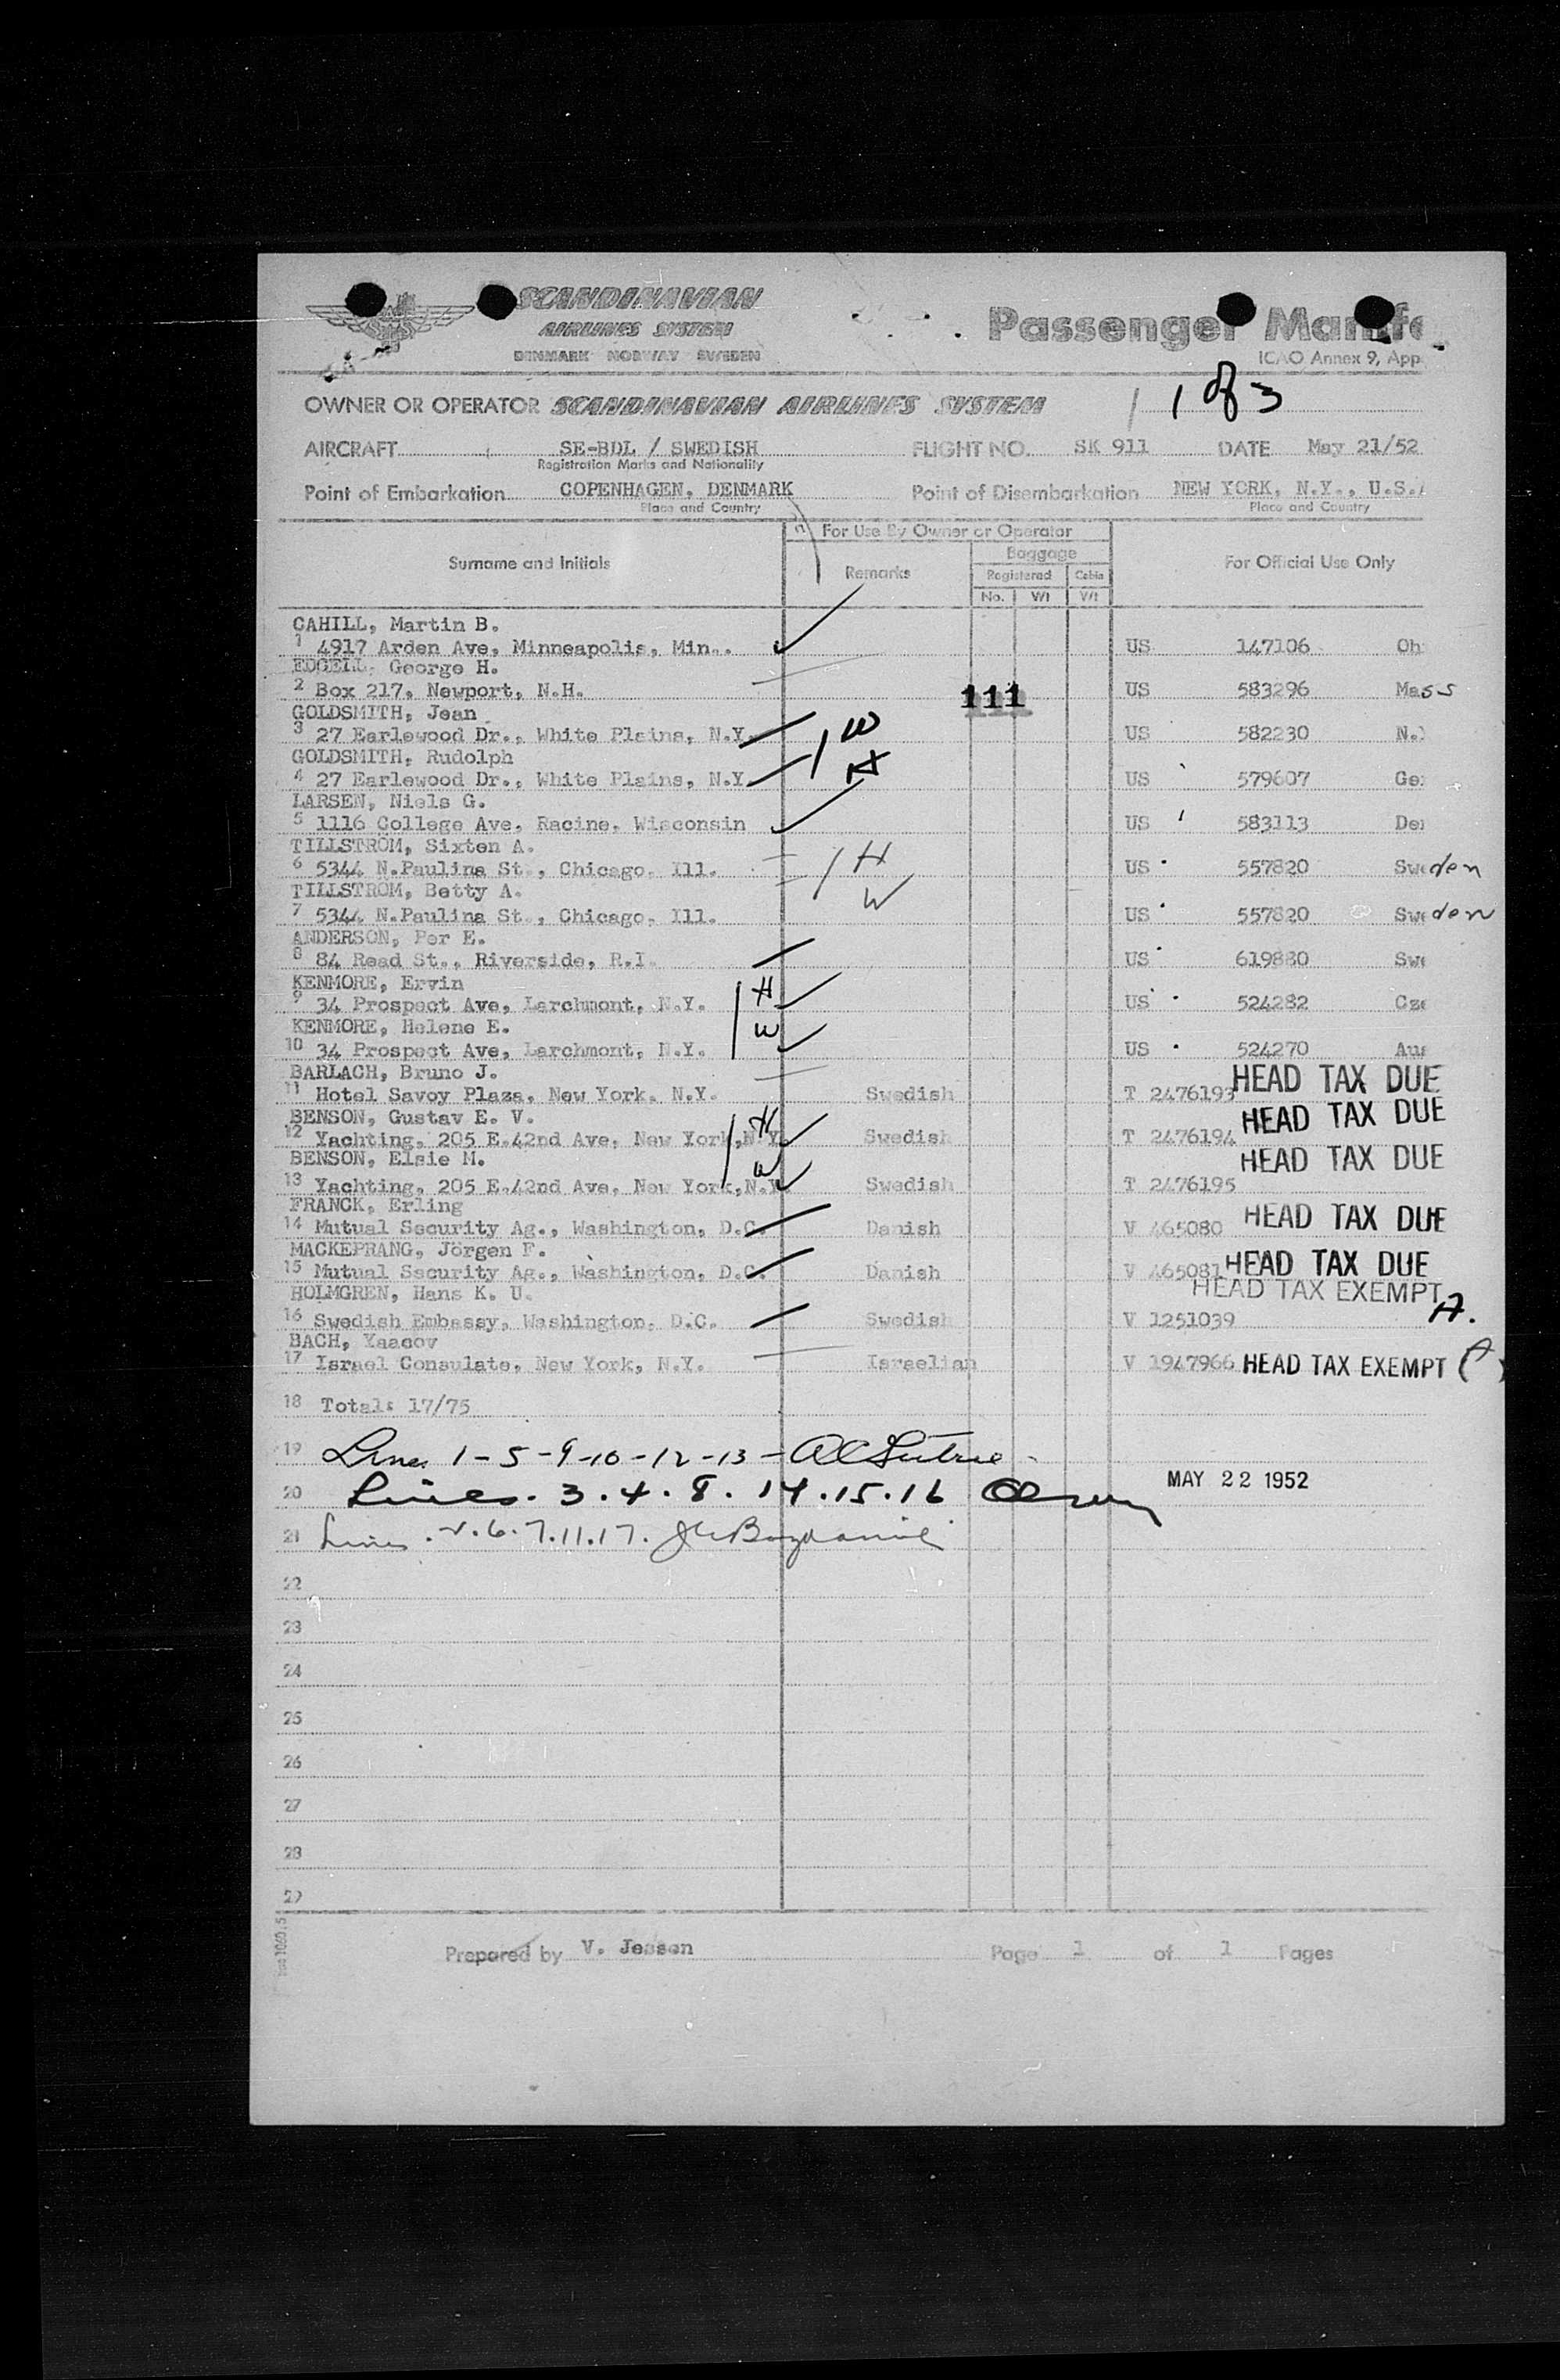 SCANDINAVIAN
AIRLINES SYSTEM
DENMARK NORWAY SWEDEN
Passenger Manife
ICAO Annex 9, App
1 of 3
OWNER OR OPERATOR SCANDINAVIAN AIRLINES SYSTEM
AIRCRAFT SE-BDL / SWEDISH FLIGHT NO. SK 911 DATE May 21/52
Registration Marks and Nationality
Point of Embarkation COPENHAGEN, DENMARK Point of Disembarkation NEW YORK, N.Y., U.S.
Place and Country Place and Country
For Use By Owner or Operator
Surname and Initials Remarks Baggage For Official Use Only
Registered Cabin
No. Wt Wt
CAHILL, Martin B.
1 4917 Arden Ave, Minneapolis, Min.. US 147106 Oh
EDGELL, George H.
2 Box 217, Newport, N.H. 111 US 583296 Mass
GOLDSMITH, Jean
3 27 Earlewood Dr., White Plains, N.Y. W US 582230 N.Y
GOLDSMITH, Rudolph
4 27 Earlewood Dr., White Plains, N.Y. H US 579607 Ge
LARSEN, Niels G.
5 1116 College Ave, Racine, Wisconsin US 583113 De
TILLSTRÖM, Sixten A.
6 5344 N.Paulina St., Chicago, Ill. H US 557820 Sweden
TILLSTRÖM, Betty A.
7 5344 N.Paulina St., Chicago, Ill. W US 557820 Sweden
ANDERSON, Per E.
8 84 Read St., Riverside, R.I. US 619880 Swe
KENMORE, Ervin
9 34 Prospect Ave, Larchmont, N.Y. H US 524282 Cze
KENMORE, Helene E.
10 34 Prospect Ave, Larchmont, N.Y. W US 524270 Aus
BARLACH, Bruno J.
11 Hotel Savoy Plaza, New York, N.Y. Swedish T 2476193 HEAD TAX DUE
BENSON, Gustav E. V.
12 Yachting, 205 E.42nd Ave, New York, N.Y. H Swedish T 2476194 HEAD TAX DUE
BENSON, Elsie M.
13 Yachting, 205 E.42nd Ave, New York, N.Y. W Swedish T 2476195 HEAD TAX DUE
FRANCK, Erling
14 Mutual Security Ag., Washington, D.C. Danish V 465080 HEAD TAX DUE
MACKEPRANG, Jörgen F.
15 Mutual Security Ag., Washington, D.C. Danish V 465081 HEAD TAX DUE
HOLMGREN, Hans K. U. HEAD TAX EXEMPT
16 Swedish Embassy, Washington, D.C. Swedish V 1251039 A.
BACH, Yaacov
17 Israel Consulate, New York, N.Y. Israelian V 1947966 HEAD TAX EXEMPT
18 Total: 17/75
19 Lines 1-5-9-10-12-13-
MAY 22 1952
20 Lines. 3.4.8.14.15.16
21 Lines . 2.6.7.11.17.
22
23
24
25
26
27
28
29
Prepared by V. Jessen Page 1 of 1 Pages